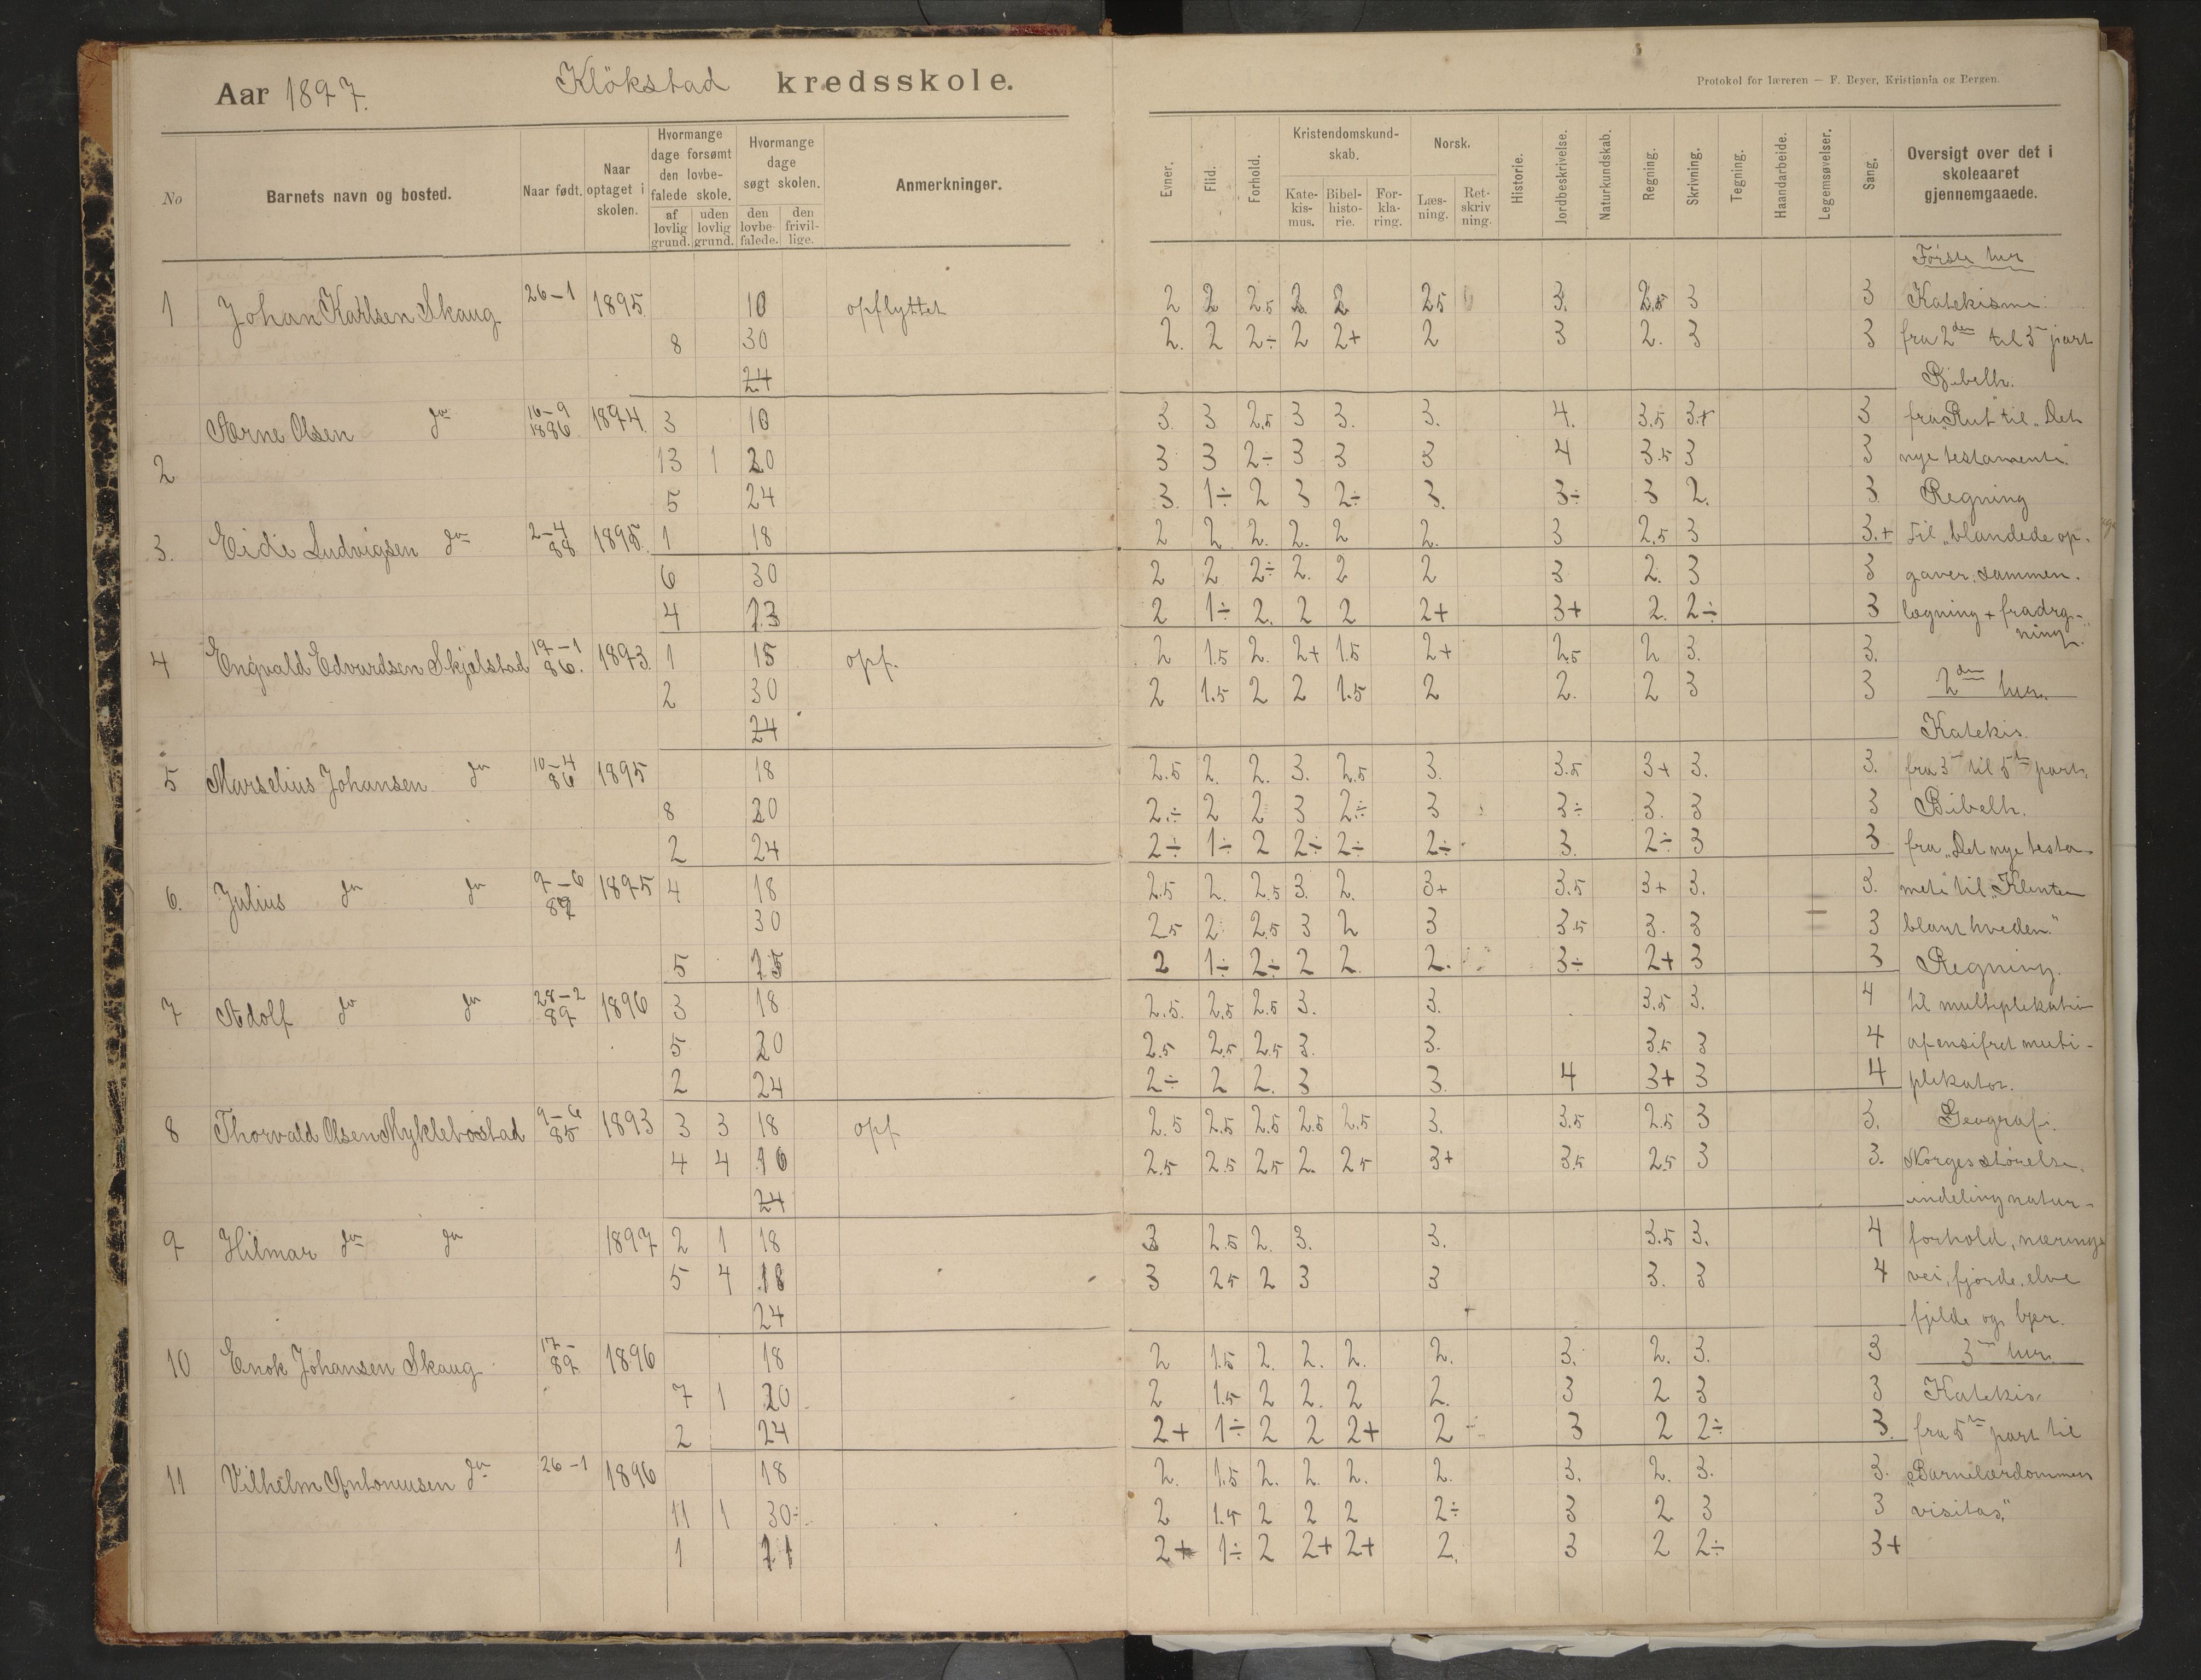 Aar 1897. Klökstad kredsskole.
Protokol for læreren — F. Beyer, Kristiania og Bergen.
No
Barnets navn og bosted.
Naar født.
Naar optaget i skolen.
Hvormange dage forsømt den lovbefalede skole.
af lovlig grund.
uden lovlig grund.
Hvormange dage søgt skolen.
den lovbefalede.
den frivillige.
Anmerkninger.
Evner.
Flid.
Forhold.
Kristendomskundskab.
Katekismus.
Bibelhistorie.
Forklaring.
Norsk.
Læsning.
Retskrivning.
Historie.
Jordbeskrivelse.
Naturkundskab.
Regning.
Skrivning.
Tegning.
Haandarbeide.
Legemsøvelser.
Sang.
Oversigt over det i skoleaaret gjennemgaaede.
1 Johan Karlsen Skaug 26-1 1895 10 opflyttet 2 2 2.5 2 2 2.5 3. 2.5 3 3
8 30 2. 2 2÷ 2 2+ 2 3 2. 3 3
24
2 Arne Olsen do 16-9 1886 1894 3 10 3. 3 2.5 3 3. 3. 4. 3.5 3.+ 3
13 1 20 3 3 2÷ 3 3 3 4 3.5 3 3
5 24 3. 1÷ 2 3 2÷ 3. 3÷ 3 2. 3
3. Eide Ludvigsen do 2-4 88 1895 1 18 2 2 2. 2. 2 2. 3 2.5 3 3.+
6 30 2 2 2÷ 2. 2 2 3 2. 3 3
4 23 2 1÷ 2. 2 2 2+ 3+ 2. 2÷ 3
4 Engvald Edvardsen Skjelstad 19-1 86. 1893. 1 15 opf. 2 1.5 2. 2+ 1.5 2+ 2.5 2 3. 3.
2 30 2 1.5 2 2 1.5 2 2. 2 3 3
24
5 Marselius Johansen do 10-4 86 1895 18 2.5 2. 2. 3. 2.5 3. 3.5 3+ 3. 3.
8 20 2.÷ 2 2 3 2÷ 3 3÷ 3. 3 3
2 24 2÷ 1÷ 2 2÷ 2÷ 2÷ 3. 2÷ 3 3
6. Julius do do 9-6 1895 4 18 2.5 2. 2.5 3. 2. 3+ 3.5 3+ 3. 3.
30 2.5 2 2.5 3 2 3 3.5 3. 3 3
5 15 2 1÷ 2÷ 2 2. 2. 3÷ 2+ 3 3
7 Adolf do do 28-2 89 1896 3 18 2.5. 2.5 2.5 3. 3. 3.5 3. 4
5 20 2.5 2.5 2.5 3. 3. 3.5 3 4
2 24 2÷ 2 2. 3 3. 4 3+ 3 4
8 Thorvald Olsen Myklebostad 9-6 85 1893 3 3 18 opf 2.5 2.5 2.5 2.5 2.5 3. 3.5 2.5 3 3.
4 4 16 2.5 2.5 2.5 2. 2.5 3+ 3.5 2.5 3 3.
24
9 Hilmar do do 1897 2 1 18 3 2.5 2. 3. 3. 3.5 3. 4
5 4 18 3 2.5 2 3 3 3. 3 4
24
10 Enok Johansen Skaug 17- 89 1896 18 2 1.5 2. 2. 2. 2. 3. 2. 3. 3
7 1 20 2 1.5 2 2. 2 2. 3 2 3 3
2 24 2+ 1÷ 2 2 2+ 2 3 2 2÷ 3.
11 Vilhelm Antoniusen do 26-1 1896 18 2. 1.5 2. 2. 2. 2. 3. 2. 3. 3.
11 1 30 2 1.5 2 2 2 2÷ 3 2 3 3
1 21 2+ 1÷ 2 2+ 2+ 2. 3 2 2÷ 3+
Første tur
Katekisme:
fra 2den til 3 part
Bibelh.
fra "Rut til "Det
nye testamente.
Regning
til "blandede op-
gaver: sammen-
lægning + fradrag-
ning".
2den tur
Katekis.
fra 3 til 5te part.
Bibelh.
fra "Det nye testa-
mete til "Klinten
blant hveden."
Regning.
til multiplikation
af ensifret multi-
plikator.
Geografi.
Norges størrelse,
indeling natur-
forhold, nærings
vei, fjorde, elve
fjelde og byer.
3 tur.
Katekis.
fra 5te part til
"Barnelærdommen
visitas."